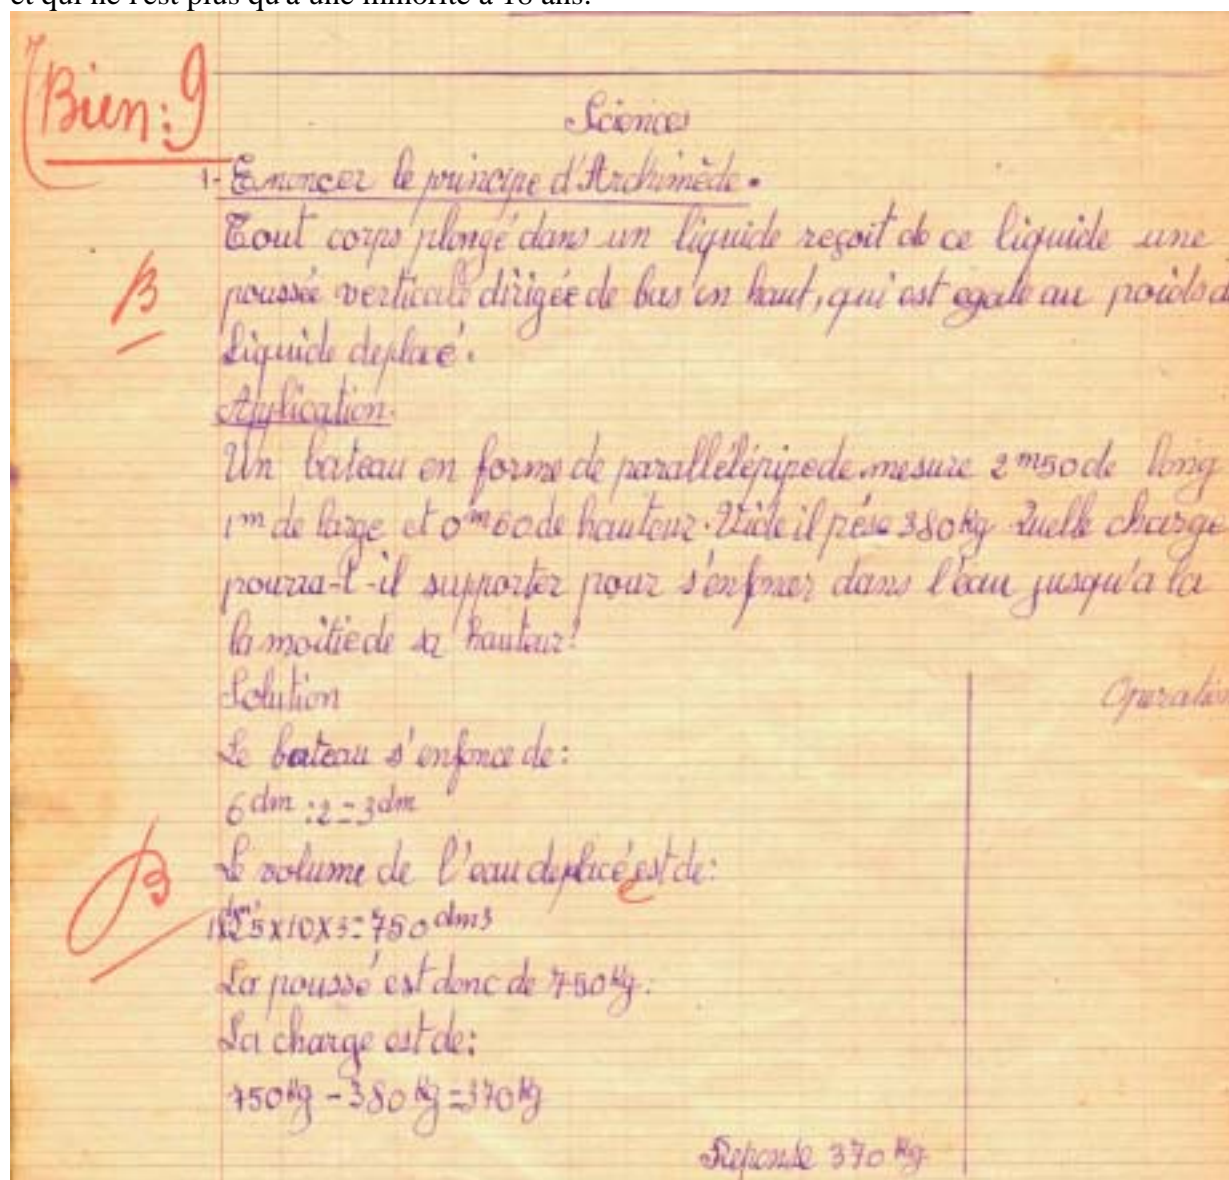 et qui ne l'est plus qu'à une minorité à 18 ans.
Bien: 9
Sciences
1- Enoncer le principe d'Archimède.
Tout corps plongé dans un liquide reçoit de ce liquide une
B
poussée verticale dirigée de bas en haut, qui est egale au poids d
liquide deplacé.
Application.
Un bateau en forme de parallélépipede mesure 2m50 de long
1m de large et 0m60 de hauteur. Vide il pése 380kg Quelle charge
pourra-t-il supporter pour s'enfoncer dans l'eau jusqu'a la
la moitié de sa hauteur?
Solution
Operation
Le bateau s'enfonce de:
6dm :2=3dm
B
Le volume de l'eau deplacé e est de:
25x10x3=750dm3
La poussé est donc de 750kg.
La charge est de:
750kg - 380kg =370kg
Reponse 370 kg